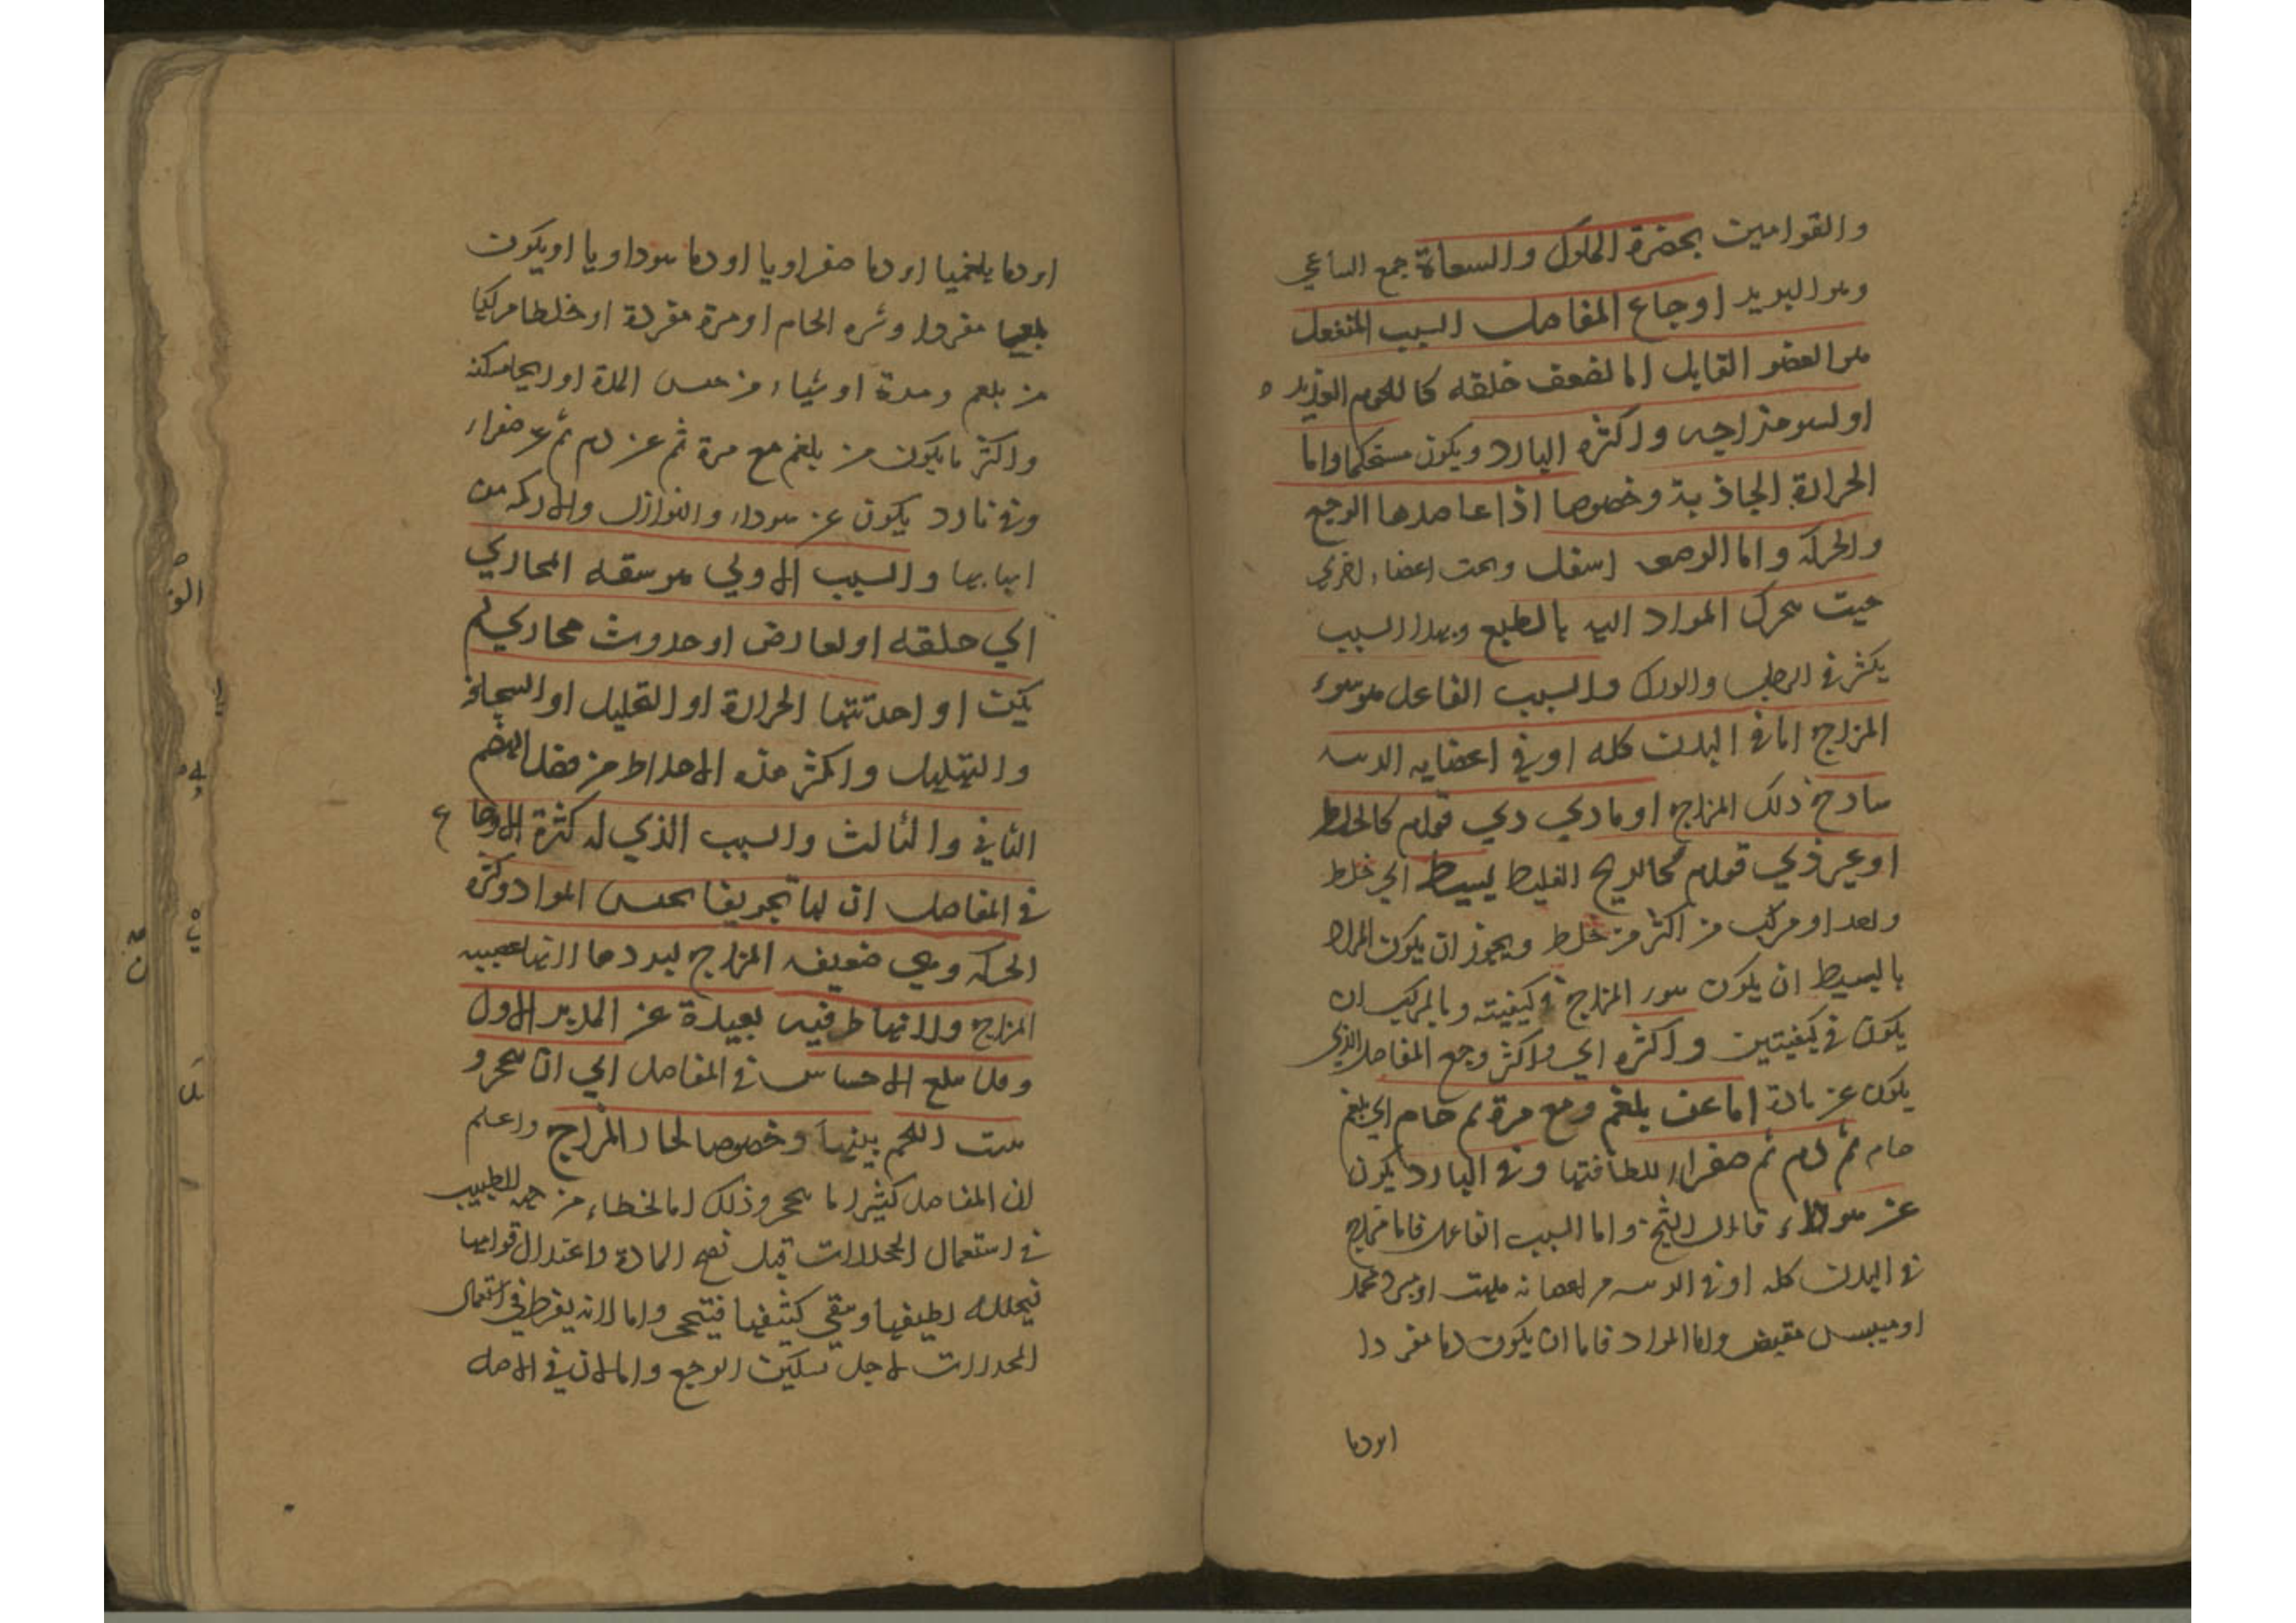 والقوامين بحضرة الملوك والسعاة جمع الساعي
وهو البريد اوجاع المفاصل السبب المنفعل
هو العضو القابل اما لضعف خلقه كاللحوم الغددية
او لسو مزاجه واكثره البارد ويكون مستحكما واما
الحرارة الجاذبة وخصوصا اذا عاضدها الوجع
والحركة واما الوضع اسفل وتحت اعضاء اخري
حيث تتحرك المواد اليه بالطبع وبهذا السبب
يكثر في الرجلين والورك والسبب الفاعل هو سوء
المزاج اما في البدن كله او في اعضايه الرئيسة
سادج ذلك المزاج او مادي ذي قوام كالخلط
او غير ذي قوام كالريح الغليظ بسيط اي خلط
واحد او مركب من اكثر من خلط ويجوز ان يكون المراد
بالبسيط ان يكون سوء المزاج في كيفيته وبالمركب ان
يكون في كيفيتين واكثره اي واكثر وجع المفاصل الذي
يكون عن مادة اما عن بلغم ومع مرة ثم خام اي بلغم
خام ثم دم ثم صفراء للطافتها وفي البارد يكون
عن سوداء قال الشيخ واما السبب الفاعل فاما مزاج
في البدن كله او في الرئيسة من اعضائه ملهب او مبرد مجمد
او ميبس مقبض واما المواد فاما ان يكون دما مفردا
او دما
او دما بلغميا او دما صفراويا او دما سوداويا او يكون
بلغما مفردا وشره الخام او مرة مفردة او خلطا مركبا
من بلغم ومدة او شياء من جنس المدة او رياحا
واكثر ما يكون من بلغم مع مرة ثم عن دم ثم عن صفراء
وفي نادر يكون عن سوداء والنوازل والحركة من
اسبابها والسبب الاولي هو سعة المجاري
اي خلقه او لعارض او حدوث مجاري لم
يكن او احدثتها الحرارة او التحليل او السخافة
والتهليل واكثر هذه الاخلاط من فضل الهضم
الثاني والثالث والسبب الذي له كثرة الاوجاع
في المفاصل ان لها تجويفا يحبس المواد وكثرة
الحركة وهي ضعيفة المزاج لبردها لانها عصبية
المزاج ولانها طرفيه بعيدة عن المدبر الاول
وقد يبلغ الاحساس في المفاصل الي ان تتحجر و
ينبت اللحم بينها وخصوصا لحار المزاج واعلم
ان المفاصل كثيرا ما تتحجر وذلك اما لخطاء من جهة الطبيب
في استعمال المحللات قبل نضج المادة واعتدال قوامها
فيتحلل لطيفها ويبقي كثيفها فيتحجر واما لانه يفرط في استعمال
المخدرات لاجل تسكين الوجع واما لان في الاصل